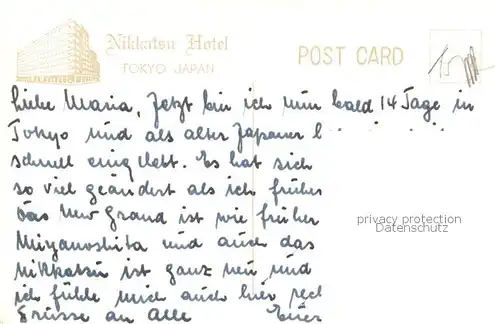 Nikkatsu Hotel
TOKYO JAPAN
POST CARD
Liebe Maria, Jetzt bin ich nun bald 14 Tage in
Tokyo und als alter Japaner
schnell eingelebt. Es hat sich
so viel geändert als ich früher
Das New Grand ist wie früher
Miyanoshita und auch das
Nikkatsu ist ganz neu und
ich fühle mich auch hier
Grüsse an Alle Euer
privacy protection
Datenschutz